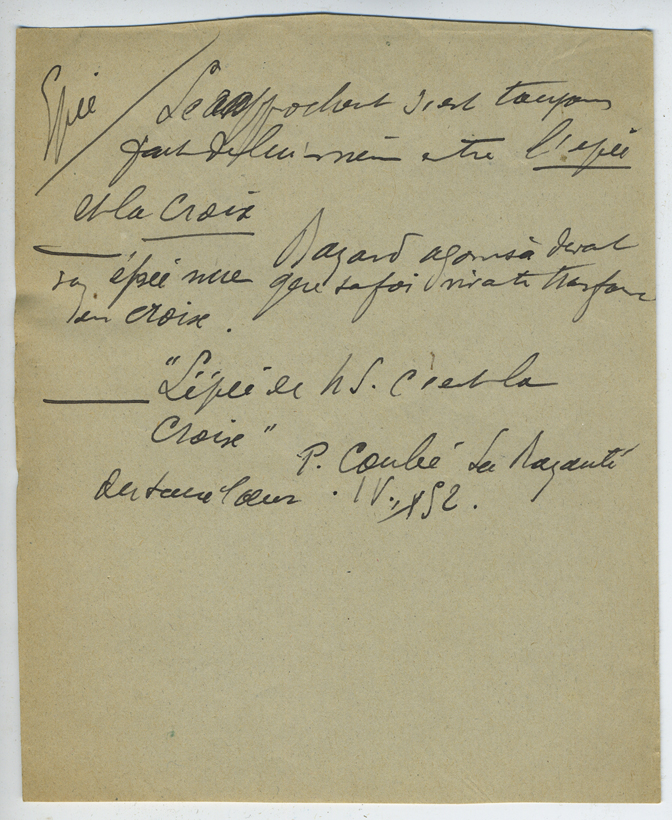 Epée
Le rapprochement s'est toujours
fait de lui-même entre l'épée
et la Croix
Bayard agonisa devant
sa épée nue que sa foi
en croix.
"L'épée de N S. c'est la
Croix"
P. Coubé La Royauté
du Sacré Coeur. IV. 152.